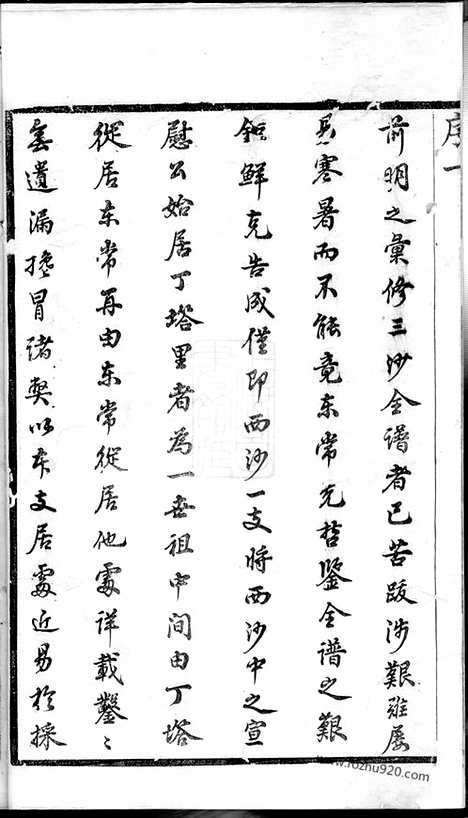 序一
前明之彙修三沙全譜者已苦跋涉艱難屢
易寒暑而不能竟東常充哲鑒全譜之艱
鉅鮮克告成僅即西沙一支時西沙中之宣
慰公始居丁塔里者為一世祖中間由丁塔
從居東常再由東常從居他處詳載鑿〻
無遺漏攙冒諸弊以本支居處近易於採
www.fozhu920.com